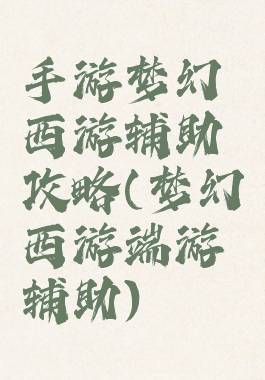 手游梦幻
西游辅助
攻略(梦幻
西游端游
辅助)